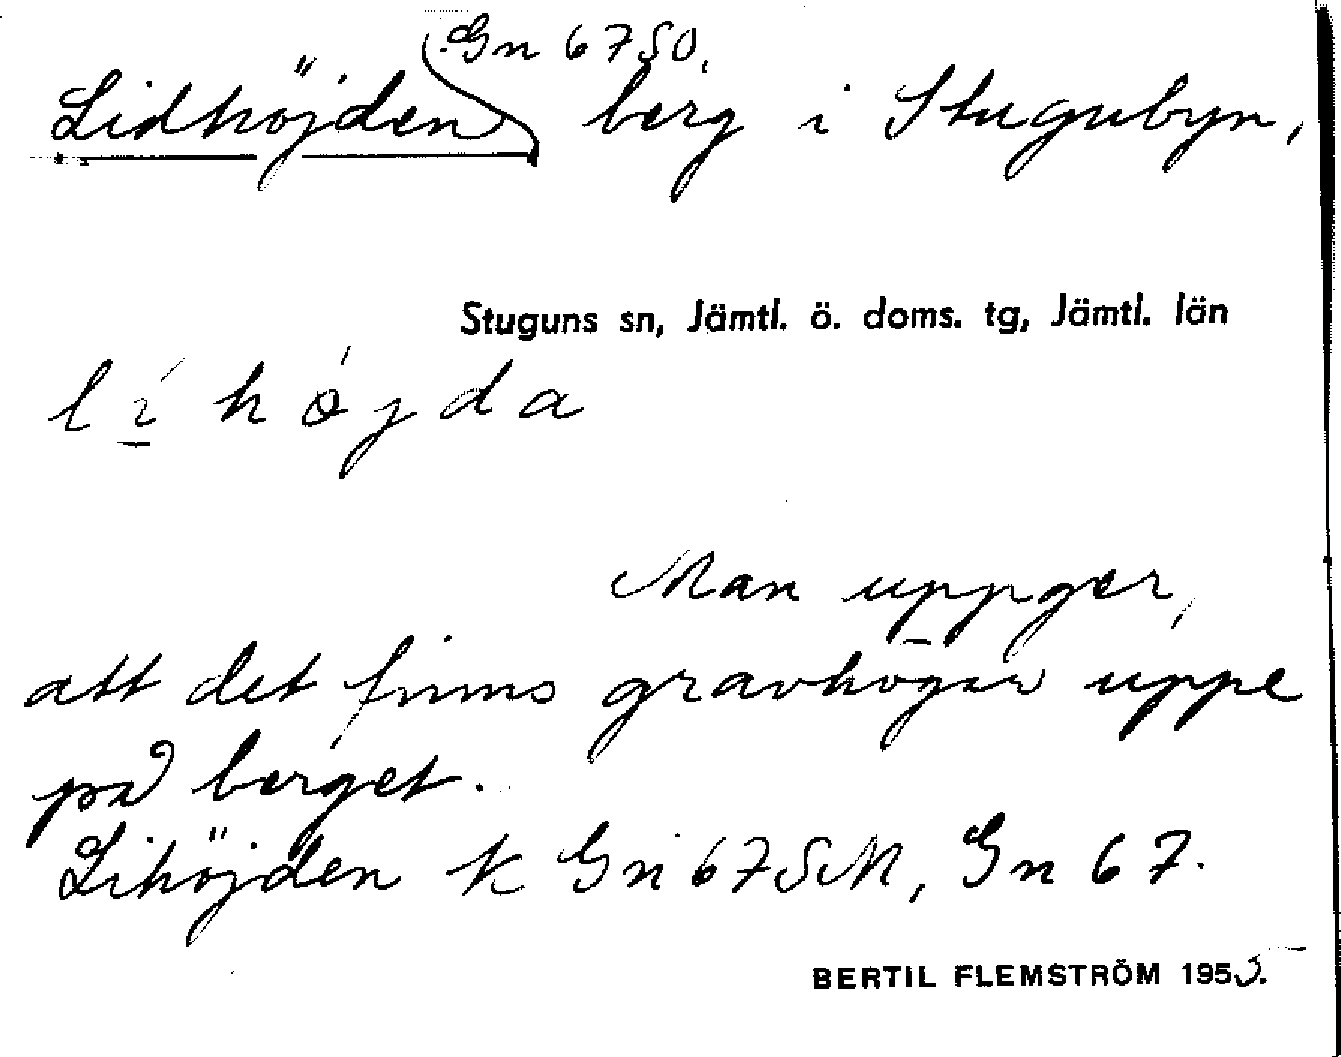 Gn 67 SO,
Lidhöjden berg i Stugubyn,
Stuguns sn, Jämtl. ö. doms. tg, Jämtl. län
lí højda
Man uppger,
att det finns gravhögar uppe
på berget.
Lihöjden k Gn 67 SM, Gn 67.
BERTIL FLEMSTRÖM 1955.